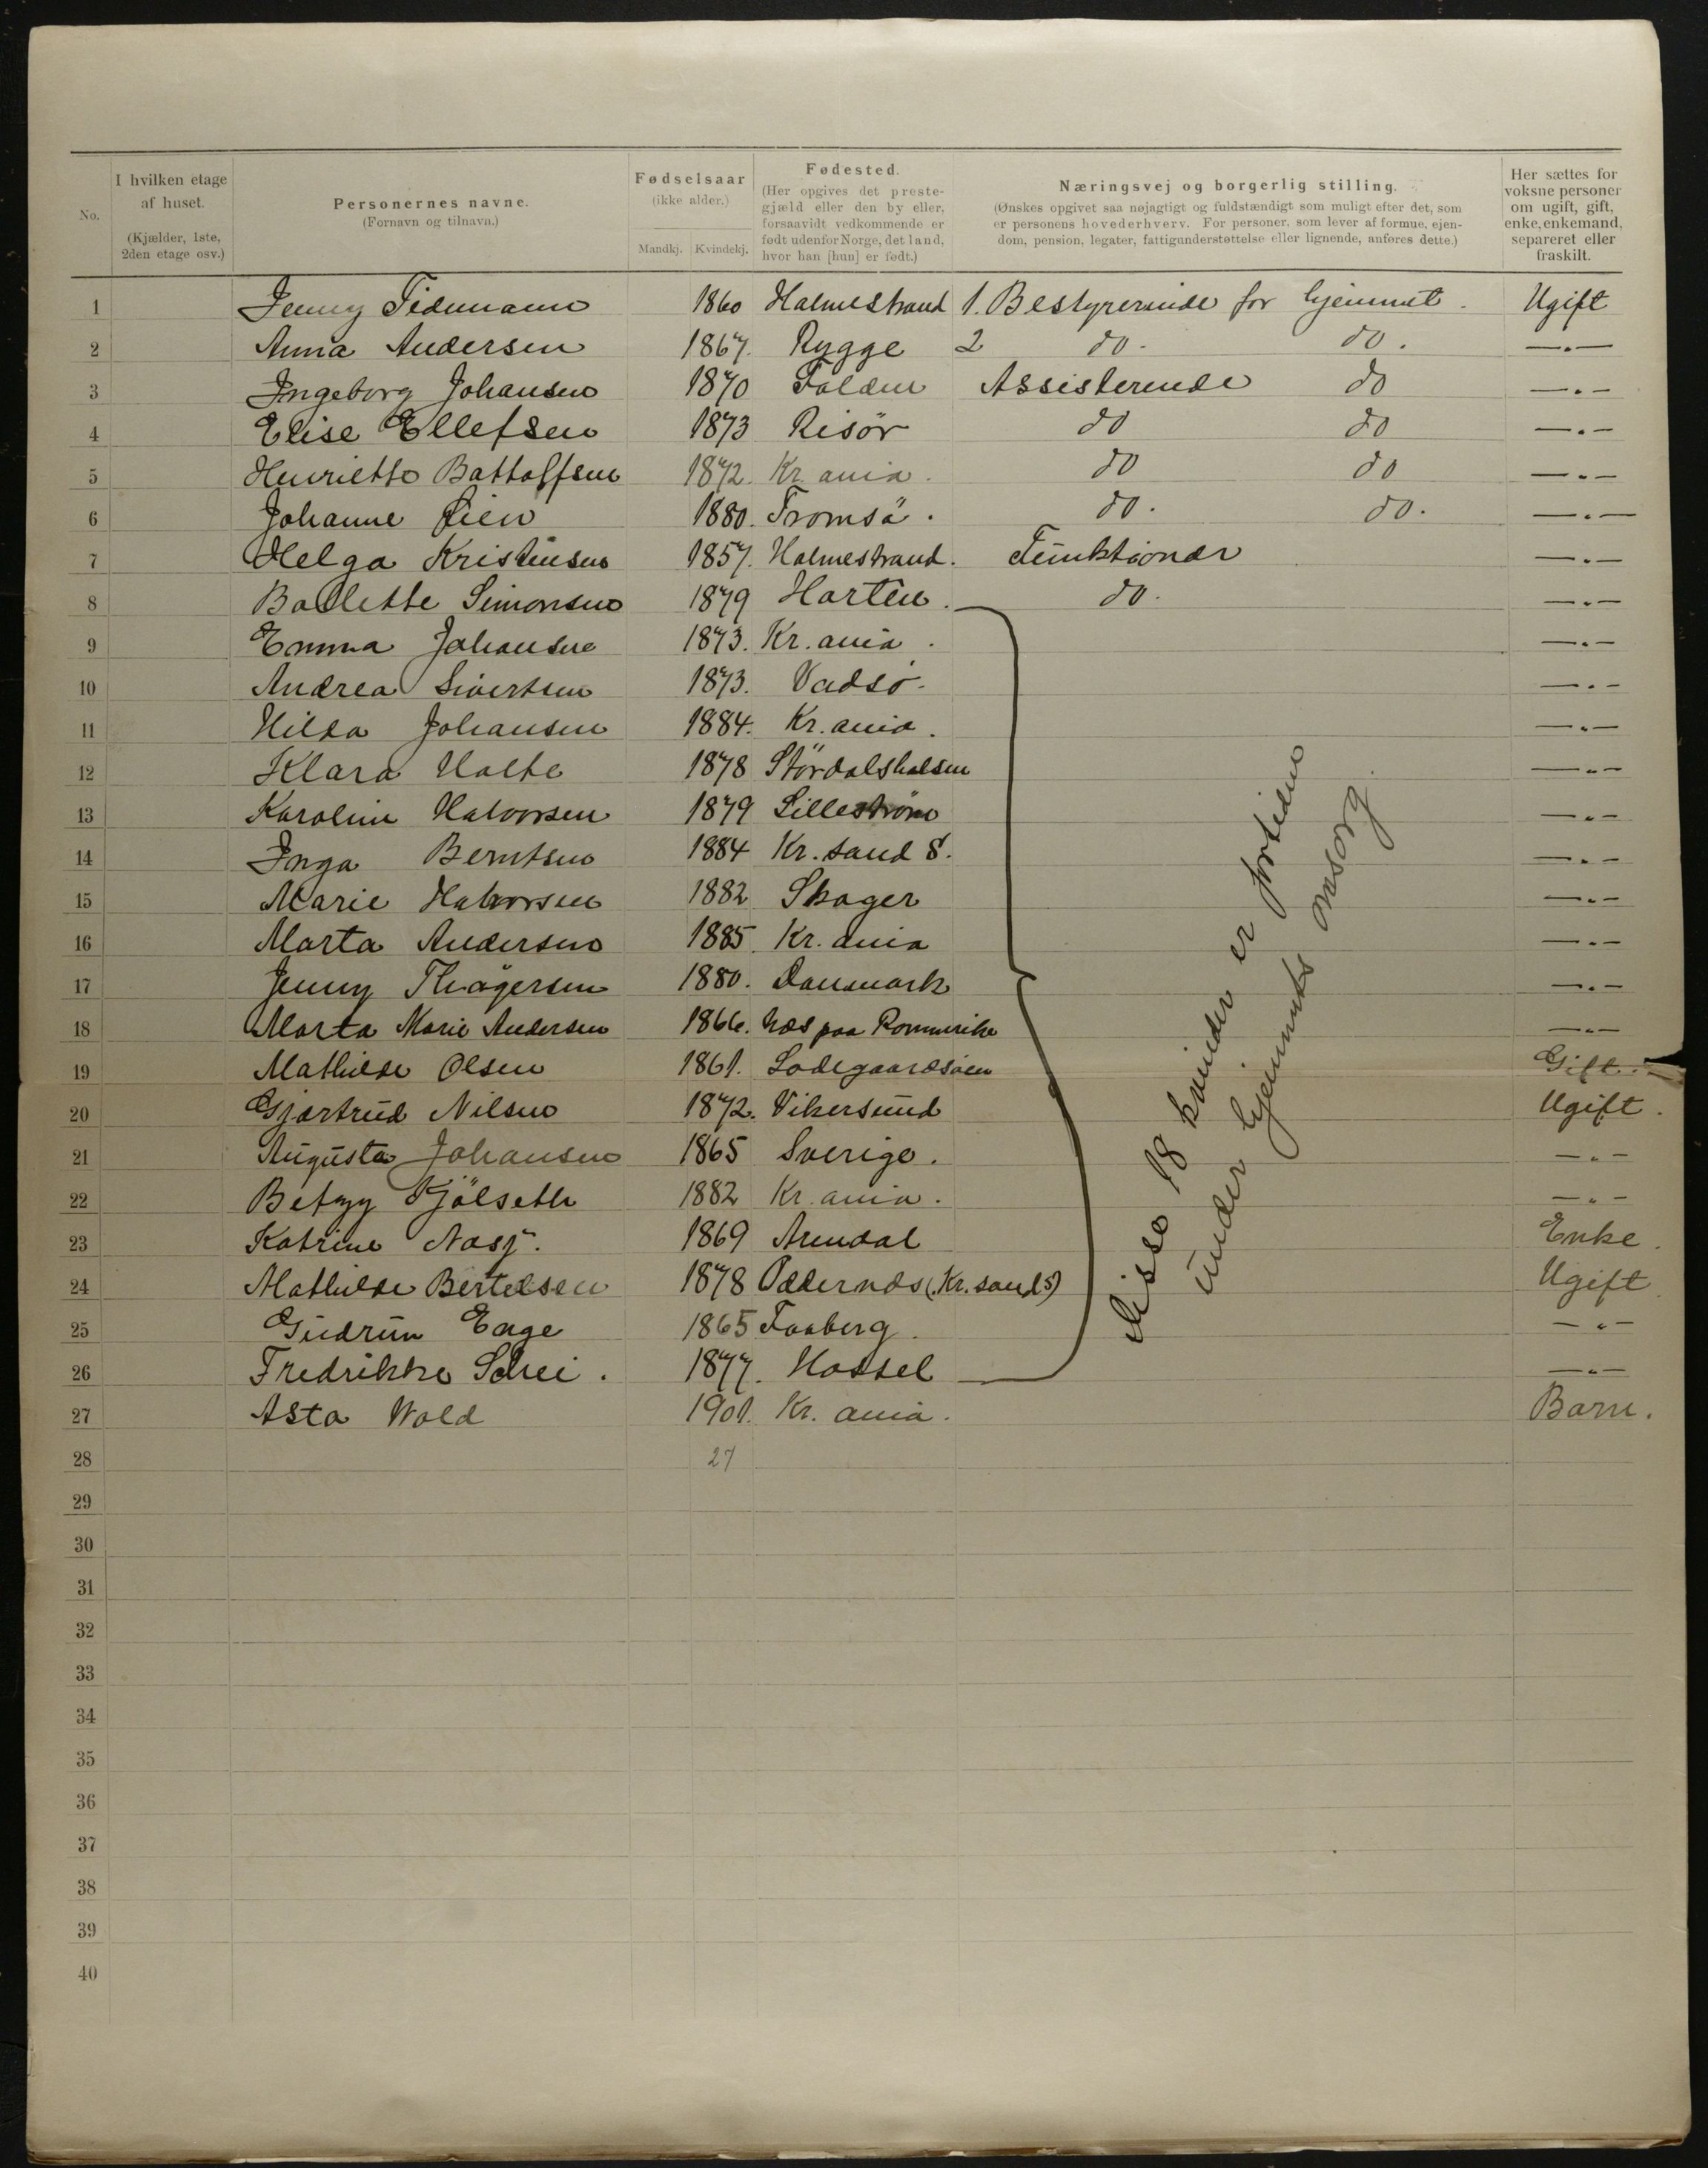 No.
I hvilken etage af huset.
(Kjælder, 1ste, 2den etage osv.)
Personernes navne.
(Fornavn og tilnavn.)
Fødselsaar
(ikke alder.)
Mandkj. Kvindekj.
Fødested.
(Her opgives det preste-
gjæld eller den by eller,
forsaavidt vedkommende er
født udenfor Norge, det land,
hvor han [hun] er født.)
Næringsvej og borgerlig stilling.
(Ønskes opgivet saa nøjagtigt og fuldstændigt som muligt efter det, som
er personens hovederhverv. For personer, som lever af formue, ejen-
dom, pension, legater, fattigunderstøttelse eller lignende, anføres dette.)
Her sættes for
voksne personer
om ugift, gift,
enke, enkemand,
separeret eller
fraskilt.
1 Jenny Tidemann 1860 Holmestrand 1. Bestyrerinde for hjemmet. Ugift
2 Anna Andersen 1867. Rygge 2 do. do. —"—
3 Ingeborg Johansen 1870 Solum Assisterende do —"—
4 Elise Ellefsen 1873 Risör do do —"—
5 Henriette 1872. Kr.ania. do do —"—
6 Johanne Lien 1880. Tromsö. do. do. —"—
7 Helga Kristensen 1857. Holmestrand. Funktionær —"—
8 Bollette Simonsen 1879 Horten. do. —"—
9 Emma Johansen 1873. Kr.ania. —"—
10 Andrea Sivertsen 1873. Vadsö. —"—
11 Hilda Johansen 1884. Kr.ania. —"—
12 Klara Holte 1878 Stördalshalsen —"—
13 Karoline Halvorsen 1879 Lilleström —"—
14 Inga Berntsen 1884 Kr.sand S. —"—
15 Marie Halvorsen 1882 Skoger —"—
16 Marta Andersen 1885 Kr.ania —"—
17 Jenny Thögersen 1880. Danmark —"—
18 Marta Marie Andersen 1866. Næs paa Romerike —"—
19 Mathilde Olsen 1861. Ladegaardsöen Gift.
20 Gjertrud Nilsen 1872. Vikersund Ugift.
21 Augusta Johansen 1865 Sverige. —"—
22 Betzy Kjölseth 1882 Kr.ania. —"—
23 Katrine 1869 Arendal Enke.
24 Mathilde Bertelsen 1878 Oddernæs (Kr.sand S) Ugift
25 Gudrun Enge 1865 Faaberg. —"—
26 Fredrikke Schei. 1877. Hassel —"—
27 Asta Wold 1901. Kr.ania. Barn.
Disse 18 kvinder er fortiden
under hjemmets omsorg.
28 27
29
30
31
32
33
34
35
36
37
38
39
40